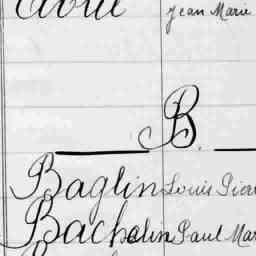 Avril Jean Marie
B.
Baglin Louis Pier
Bachelin Paul Mar